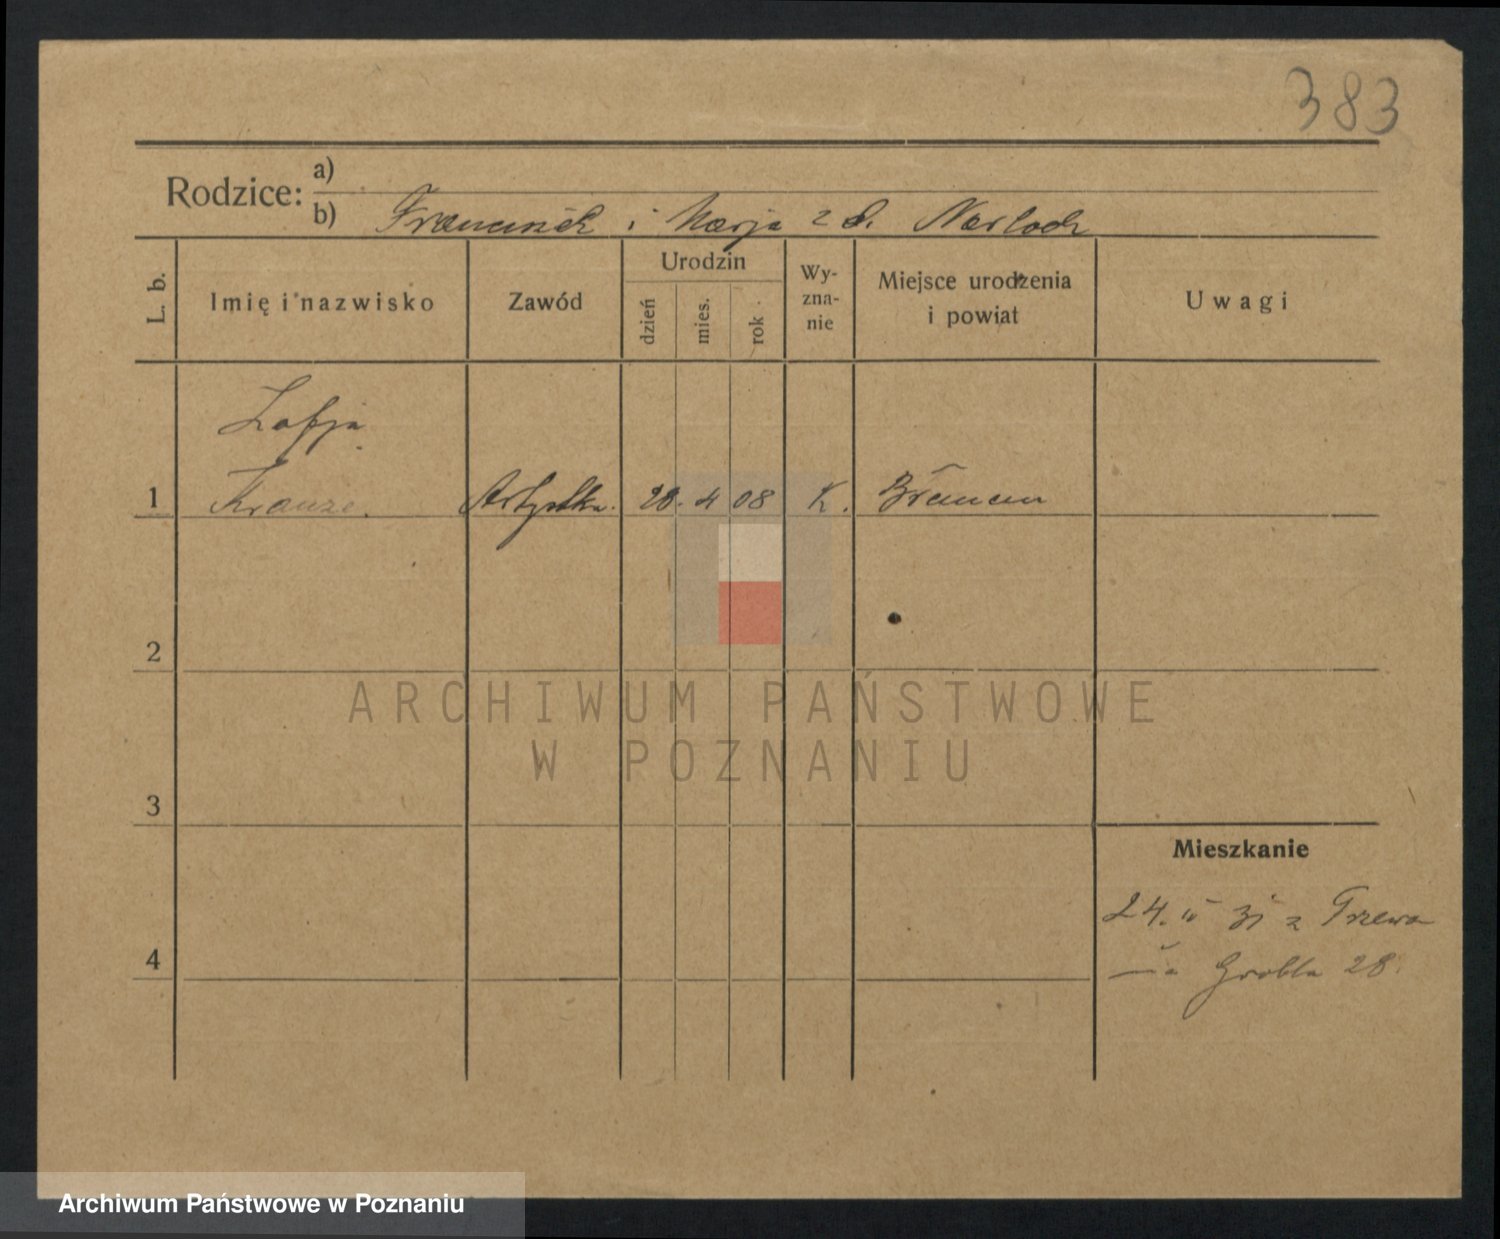 383
Rodzice: a)
b) Franciszek i Marja z d. Narloch
L. b.
Imię i nazwisko
Zawód
Urodzin
dzień
mies.
rok
Wy-
zna-
nie
Miejsce urodzenia
i powiat
Uwagi
Zofja
1 Krauze. Artystka. 28. 4 08 K. Bremen
2
ARCHIWUM PAŃSTWOWE
W POZNANIU
3
Mieszkanie
24. 31 z
4 Grobla 28.
Archiwum Państwowe w Poznaniu